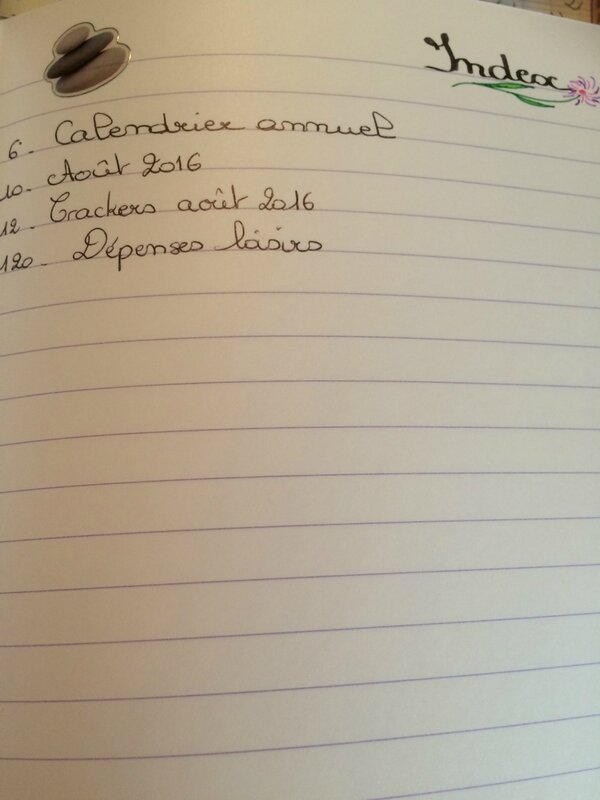 Index
6. Calendrier annuel
10. Août 2016
12. Trackers août 2016
120. Dépenses loisirs